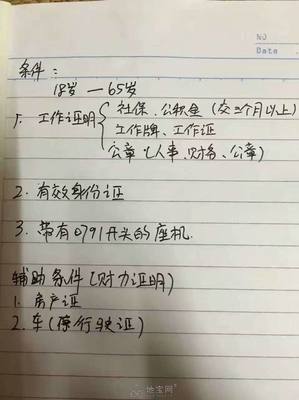 NO
Date
条件：
18岁 — 65岁
1. 工作证明{社保、公积金(交三个月以上)
工作牌、工作证
公章(人事、财务、公章)
2. 有效身份证
3. 带有0791开头的座机
辅助条件(财力证明)
1. 房产证
2. 车(行驶证)
地宝网